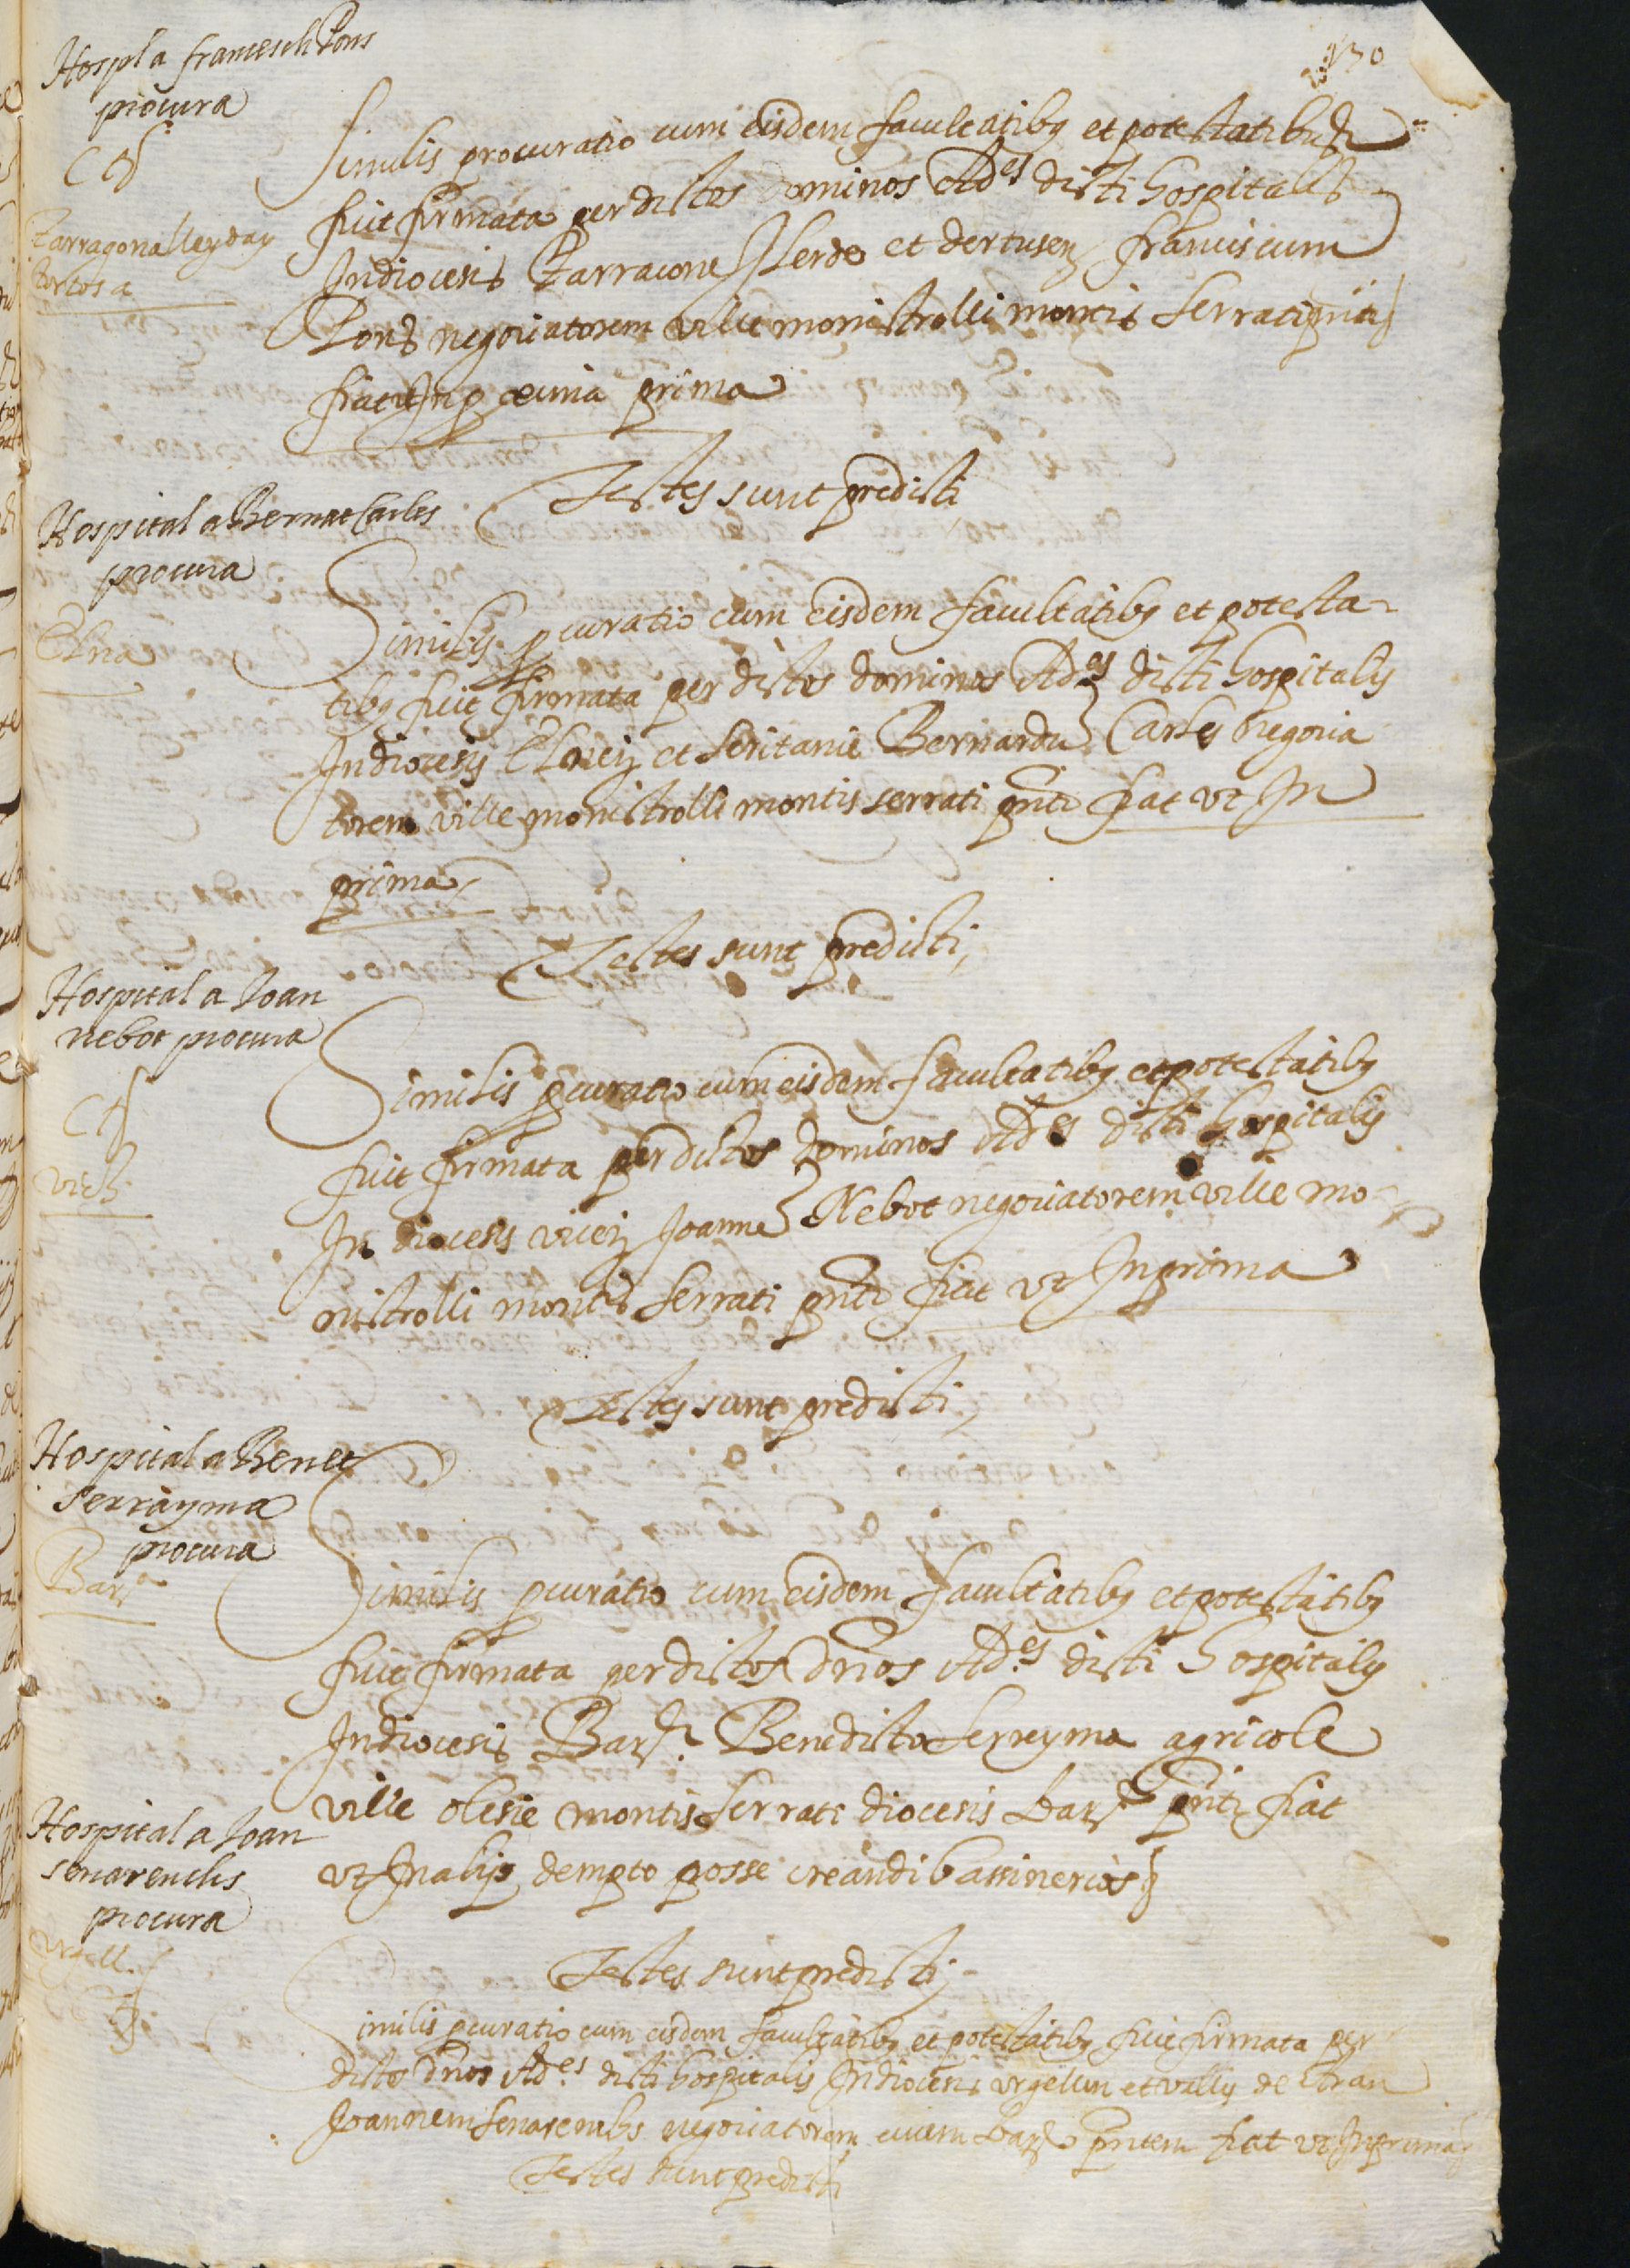 130
Hospl a francesch Pons
procura
Tarragona lleyda y
Tortosa
Similis procuratio cum eisdem facultatibq et potestatibus
fuit firmata per dictos dominos Ad.es dicti hospitalis
In diocesis Tarracone Ilerde et dertusen franciscum
Pons negociatorem ville monistrolli montis serrati pnti
fiat ut In prima
Testes sunt predicti
Hospital a Bernat Carles
procura
Elna
Similis pcuratio cum eisdem facultatibq et potesta-
tibq fuit firmata per dictos dominos Ad.es dicti hospitalis
In diocesis Elnen et Ceritanie Bernardu Carles negocia
torem ville monistrolli montis serrati pnte fiat vt In
prima
Testes sunt predicti,
Hospital a Joan
nebot procura
vich
Similis pcuratio cum eisdem facultatibq et potestatibq
fuit firmata per dictos dominos Ad.es dicti hospitalis
In diocesis vicen Joanne Nebot negociatorem ville mo-
nistrolli montis serrati pnte fiat vt In prima
Testes sunt predicti,
Hospital a Benet
serrayma
procura
Bar.a
Similis pcuratio cum eisdem facultatibq et potestatibq
fuit firmata per dictos dnos Ad.es dicti hospitalis
In diocesis Bar. Benedicto Serreyma agricole
ville olesie montis serrati diocesis bar. pnti fiat
vt In alijs dempto posse creandi bassinerios
Testes sunt predicti,
Hospital a Joan
senarenchs
procura
Vrgell
Similis pcuratio cum eisdem facultatibq et potestatibq fuit firmata per
dictos dnos Ad.es dicti hospitalis In diocesis vrgellen et vallis de Aran
Joannem senarenchs negociatorem civem bar. pntem fiat vt In prima
Testes sunt predicti